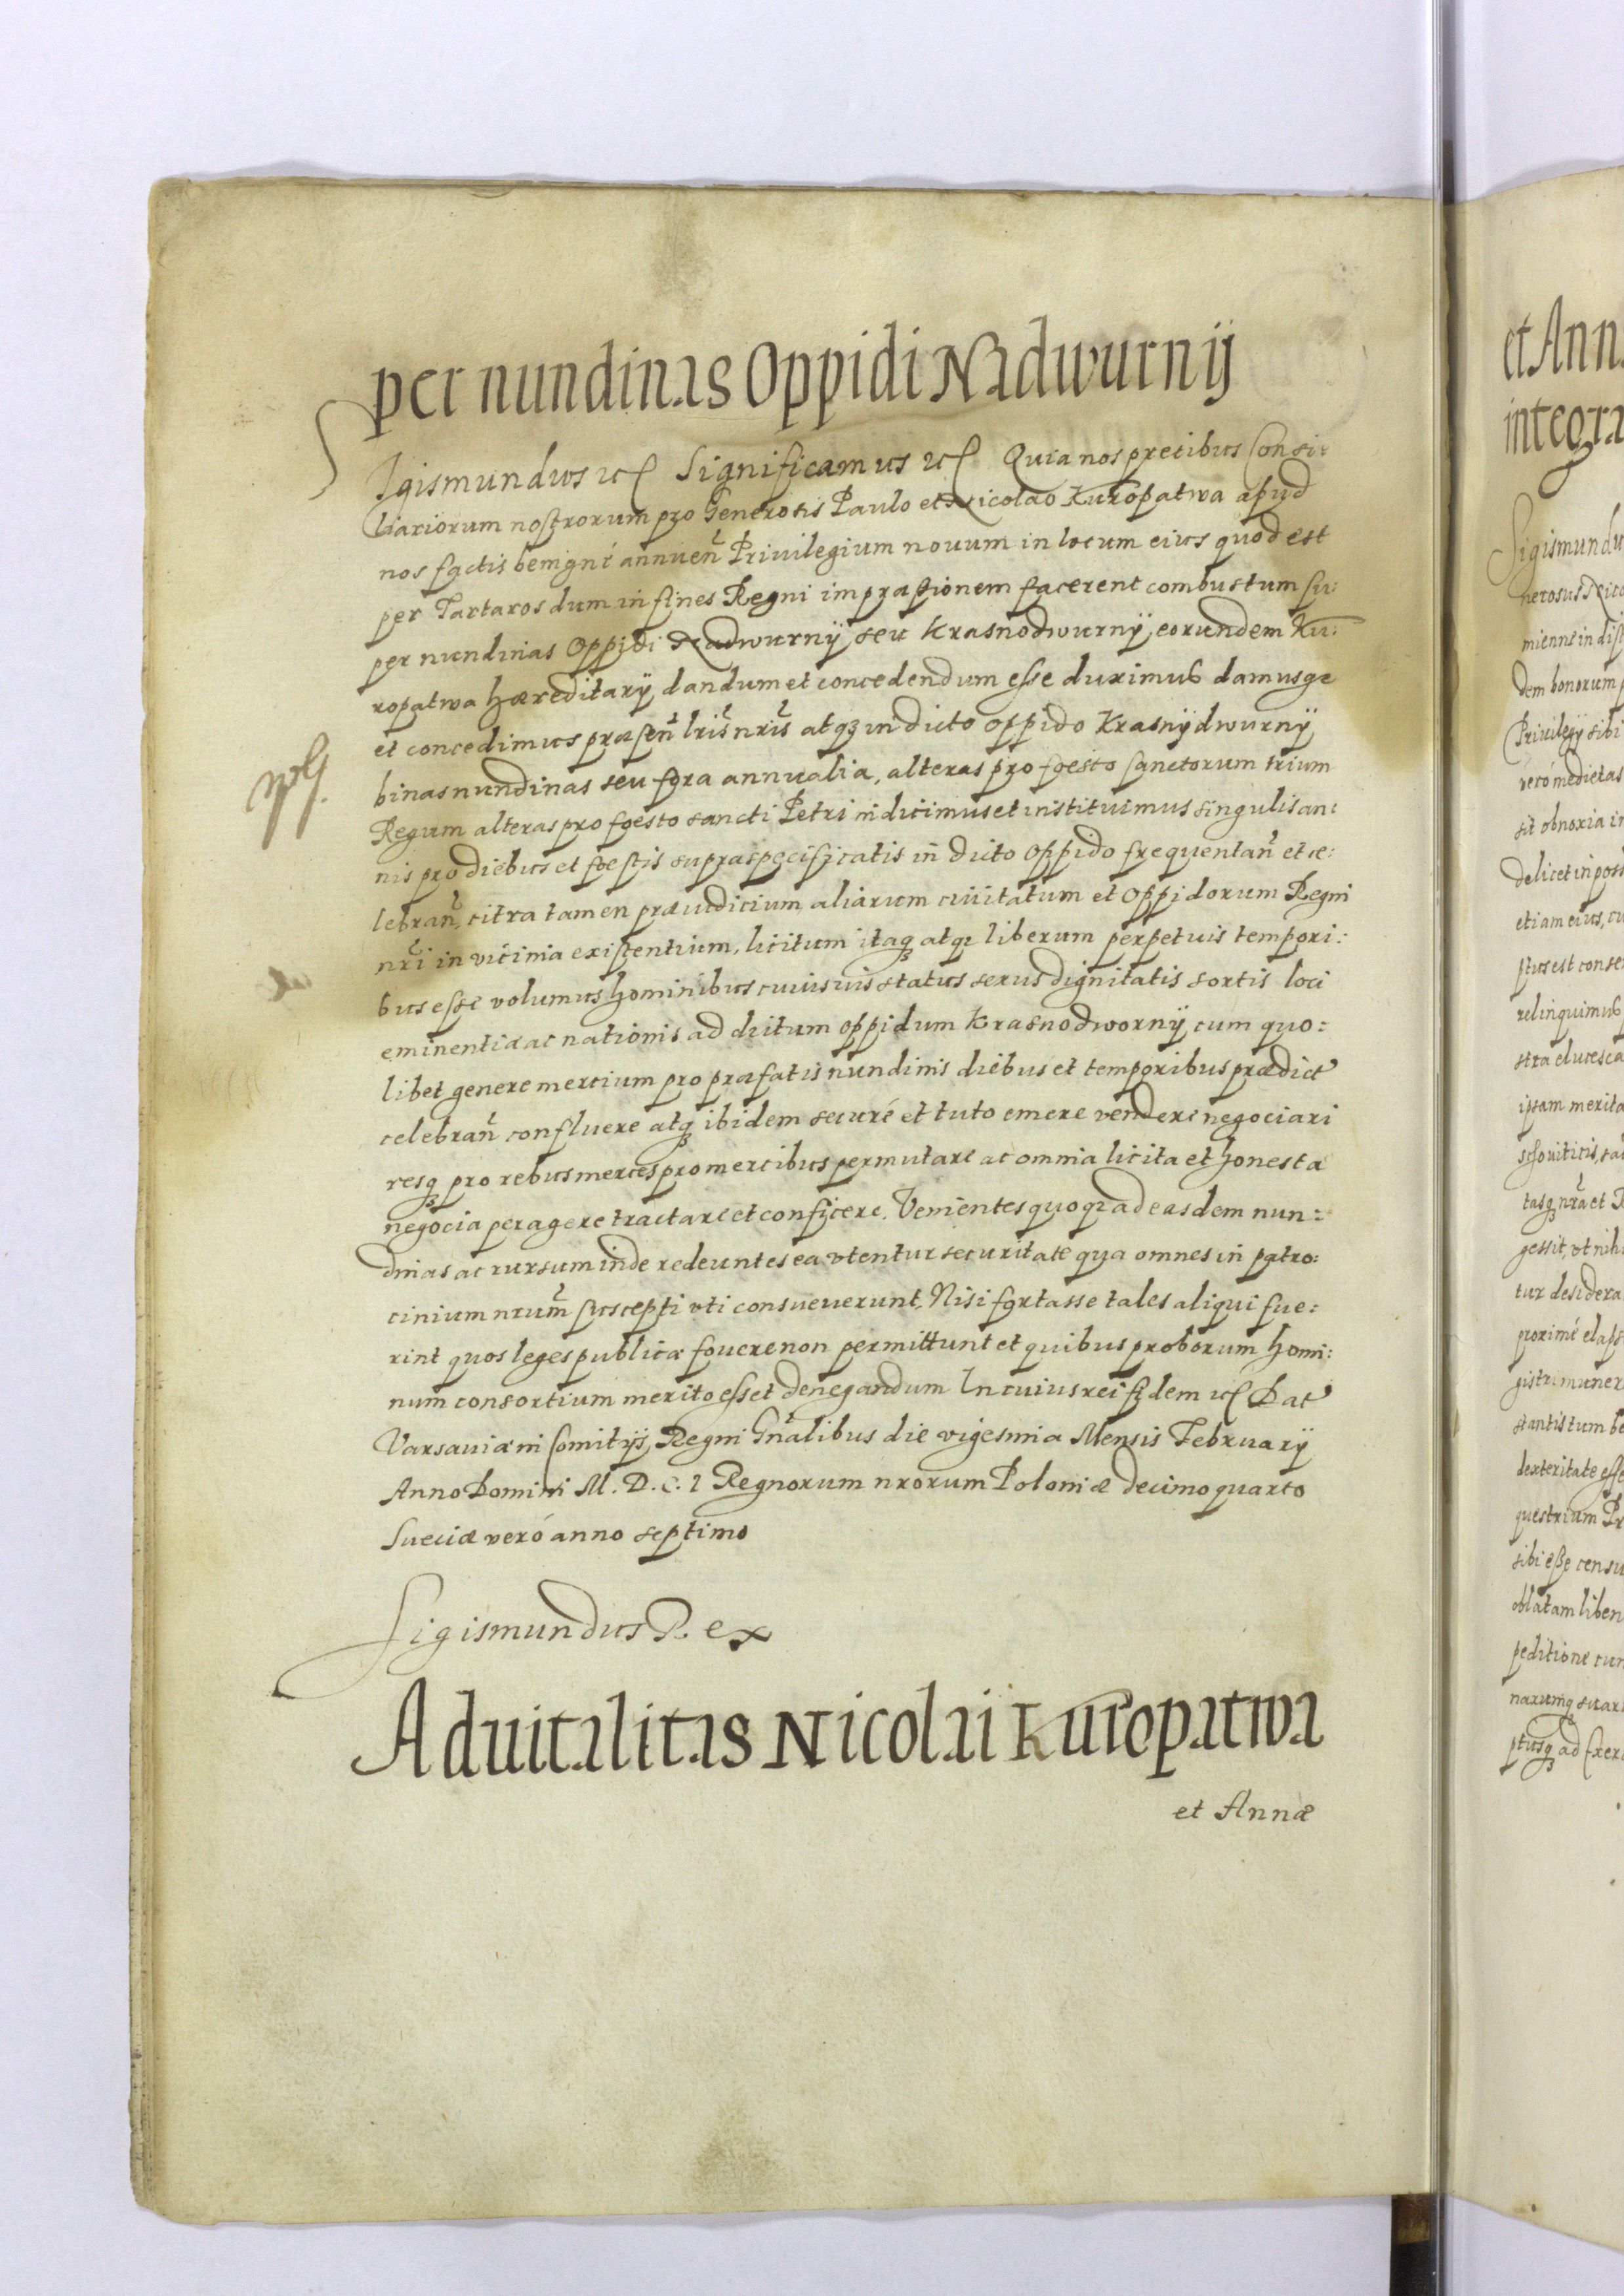 per nundinas Oppidi Nadwurnÿ
Sigismundus etc Significamus etc Quia nos precibus Consi:
liariorum nostrorum pro Generosis Paulo et Nicolao Kuropatwa apud
nos factis benigné annuen̄ Priuilegium nouum in locum eius quod est
per Tartaros dum in fines Regni impraßionem facerent combustum su:
per nundinas Oppidi Nadwurnÿ seu Krasnodwurnÿ, eorundem Ku:
ropatwa hæreditarÿ, dandum et concedendum esse duximus damusqe
et concedimus præsen̄ lris̄ nris̄ atqꝫ in dicto oppido Krasnÿdwurnÿ
binas nundinas seu fora annualia, alteras pro foesto sanctorum trium
Regum alteras pro foesto sancti Petri indicimus et instituimus singulis an:
nis pro diebus et foestis supraspecificatis in dicto oppido frequentan̄ et ce:
lebran̄, citra tamen præiudicium aliarum ciuitatum et Oppidorum Regni
nr̄i in vicinia existentium, licitum itaqꝫ atqꝫ liberum perpetuis tempori:
bus esse volumus hominibus cuiusuis status sexus dignitatis sortis loci
eminentiæ ac nationis ad dictum oppidum Krasnodwornÿ, cum quo:
libet genere mercium pro præfatis nundinis diebus et temporibus prædict
celebran̄ confluere atqꝫ ibidem securé et tuto emere vendere negociari
resqꝫ pro rebus merces pro mercibus permutare ac omnia licita et honesta
negocia peragere tractare et conficere. Venientes quoqꝫ ad easdem nun:
dinas ac rursum inde redeuntes ea vtentur securitate qua omnes in patro:
cinium nrum̄ suscepti vti consueuerunt. Nisi fortasse tales aliqui fue:
rint quos leges publicæ fouere non permittunt et quibus proborum homi:
num consortium merito esset denegandum In cuius rei fidem etc Dat
Varsauiæ in Comitÿs Regni Gn̄alibus die vigesima Mensis Februarÿ
Anno Domini M. D. C. I Regnorum nrorum Poloniæ decimo quarto
Sueciæ veró anno septimo
Sigismundus Rex
Aduitalitas Nicolai Kuropatwa
et Annæ
et Ann
integra
Sigismundu
nerosus Nico
mienne in dist
dem bonorum
Priuilegÿ sibi
veró medietas
sit obnoxia in
delicet in pos
etiam eius, cu
ptus est conse
relinquimus
stra elucesca
ipsam merita
tasqꝫ nr̄a et
gessit, vt nih
tur desidera
proximé elaps
gistri muner
stantis tum be
dexteritate esse
questrium Pr
sibi eße censu
oblatam liben
peditione cum
narumqꝫ suar
ptusqꝫ ad Exer